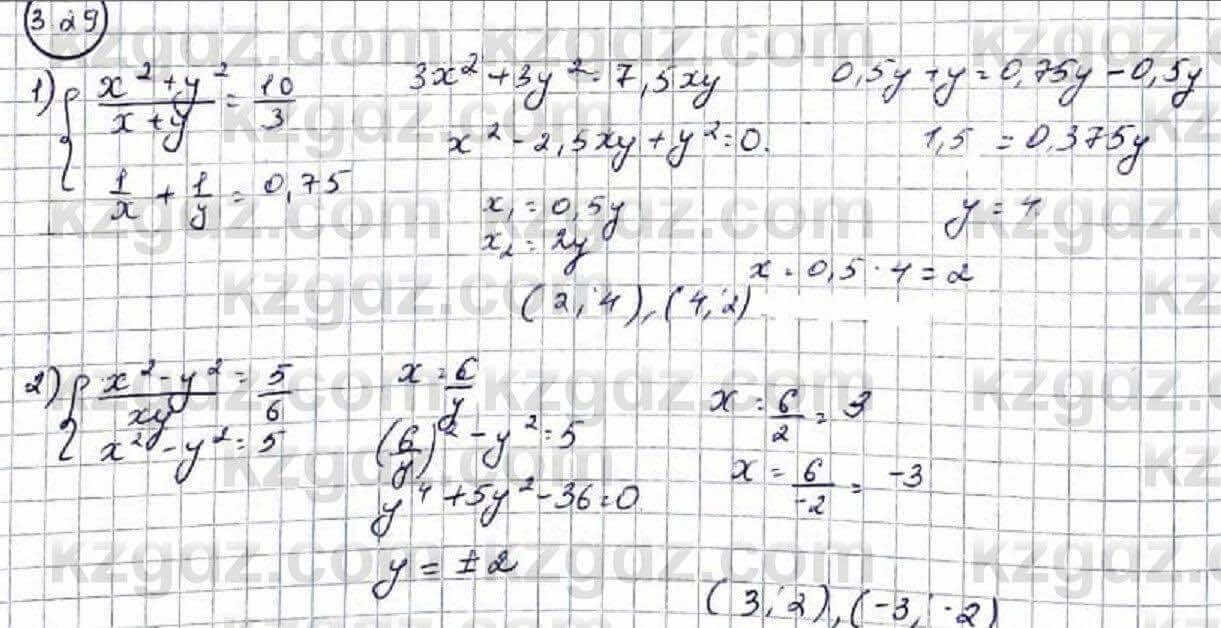 3.29
1) { (x² + y²)/(x + y) = 10/3
1/x + 1/y = 0,75
3x² + 3y² = 7,5xy
x² - 2,5xy + y² = 0.
x₁ = 0,5y
x₂ = 2y
0,5y + y = 0,75y - 0,5y
1,5 = 0,375y
y = 4.
x = 0,5 · 4 = 2
(2; 4), (4; 2)
2) { (x² - y²)/(xy) = 5/6
x² - y² = 5
x = 6/y
(6/y)² - y² = 5
y⁴ + 5y² - 36 = 0.
y = ±2
x = 6/2 = 3
x = 6/-2 = -3
(3; 2), (-3; -2)
kzgdz.com